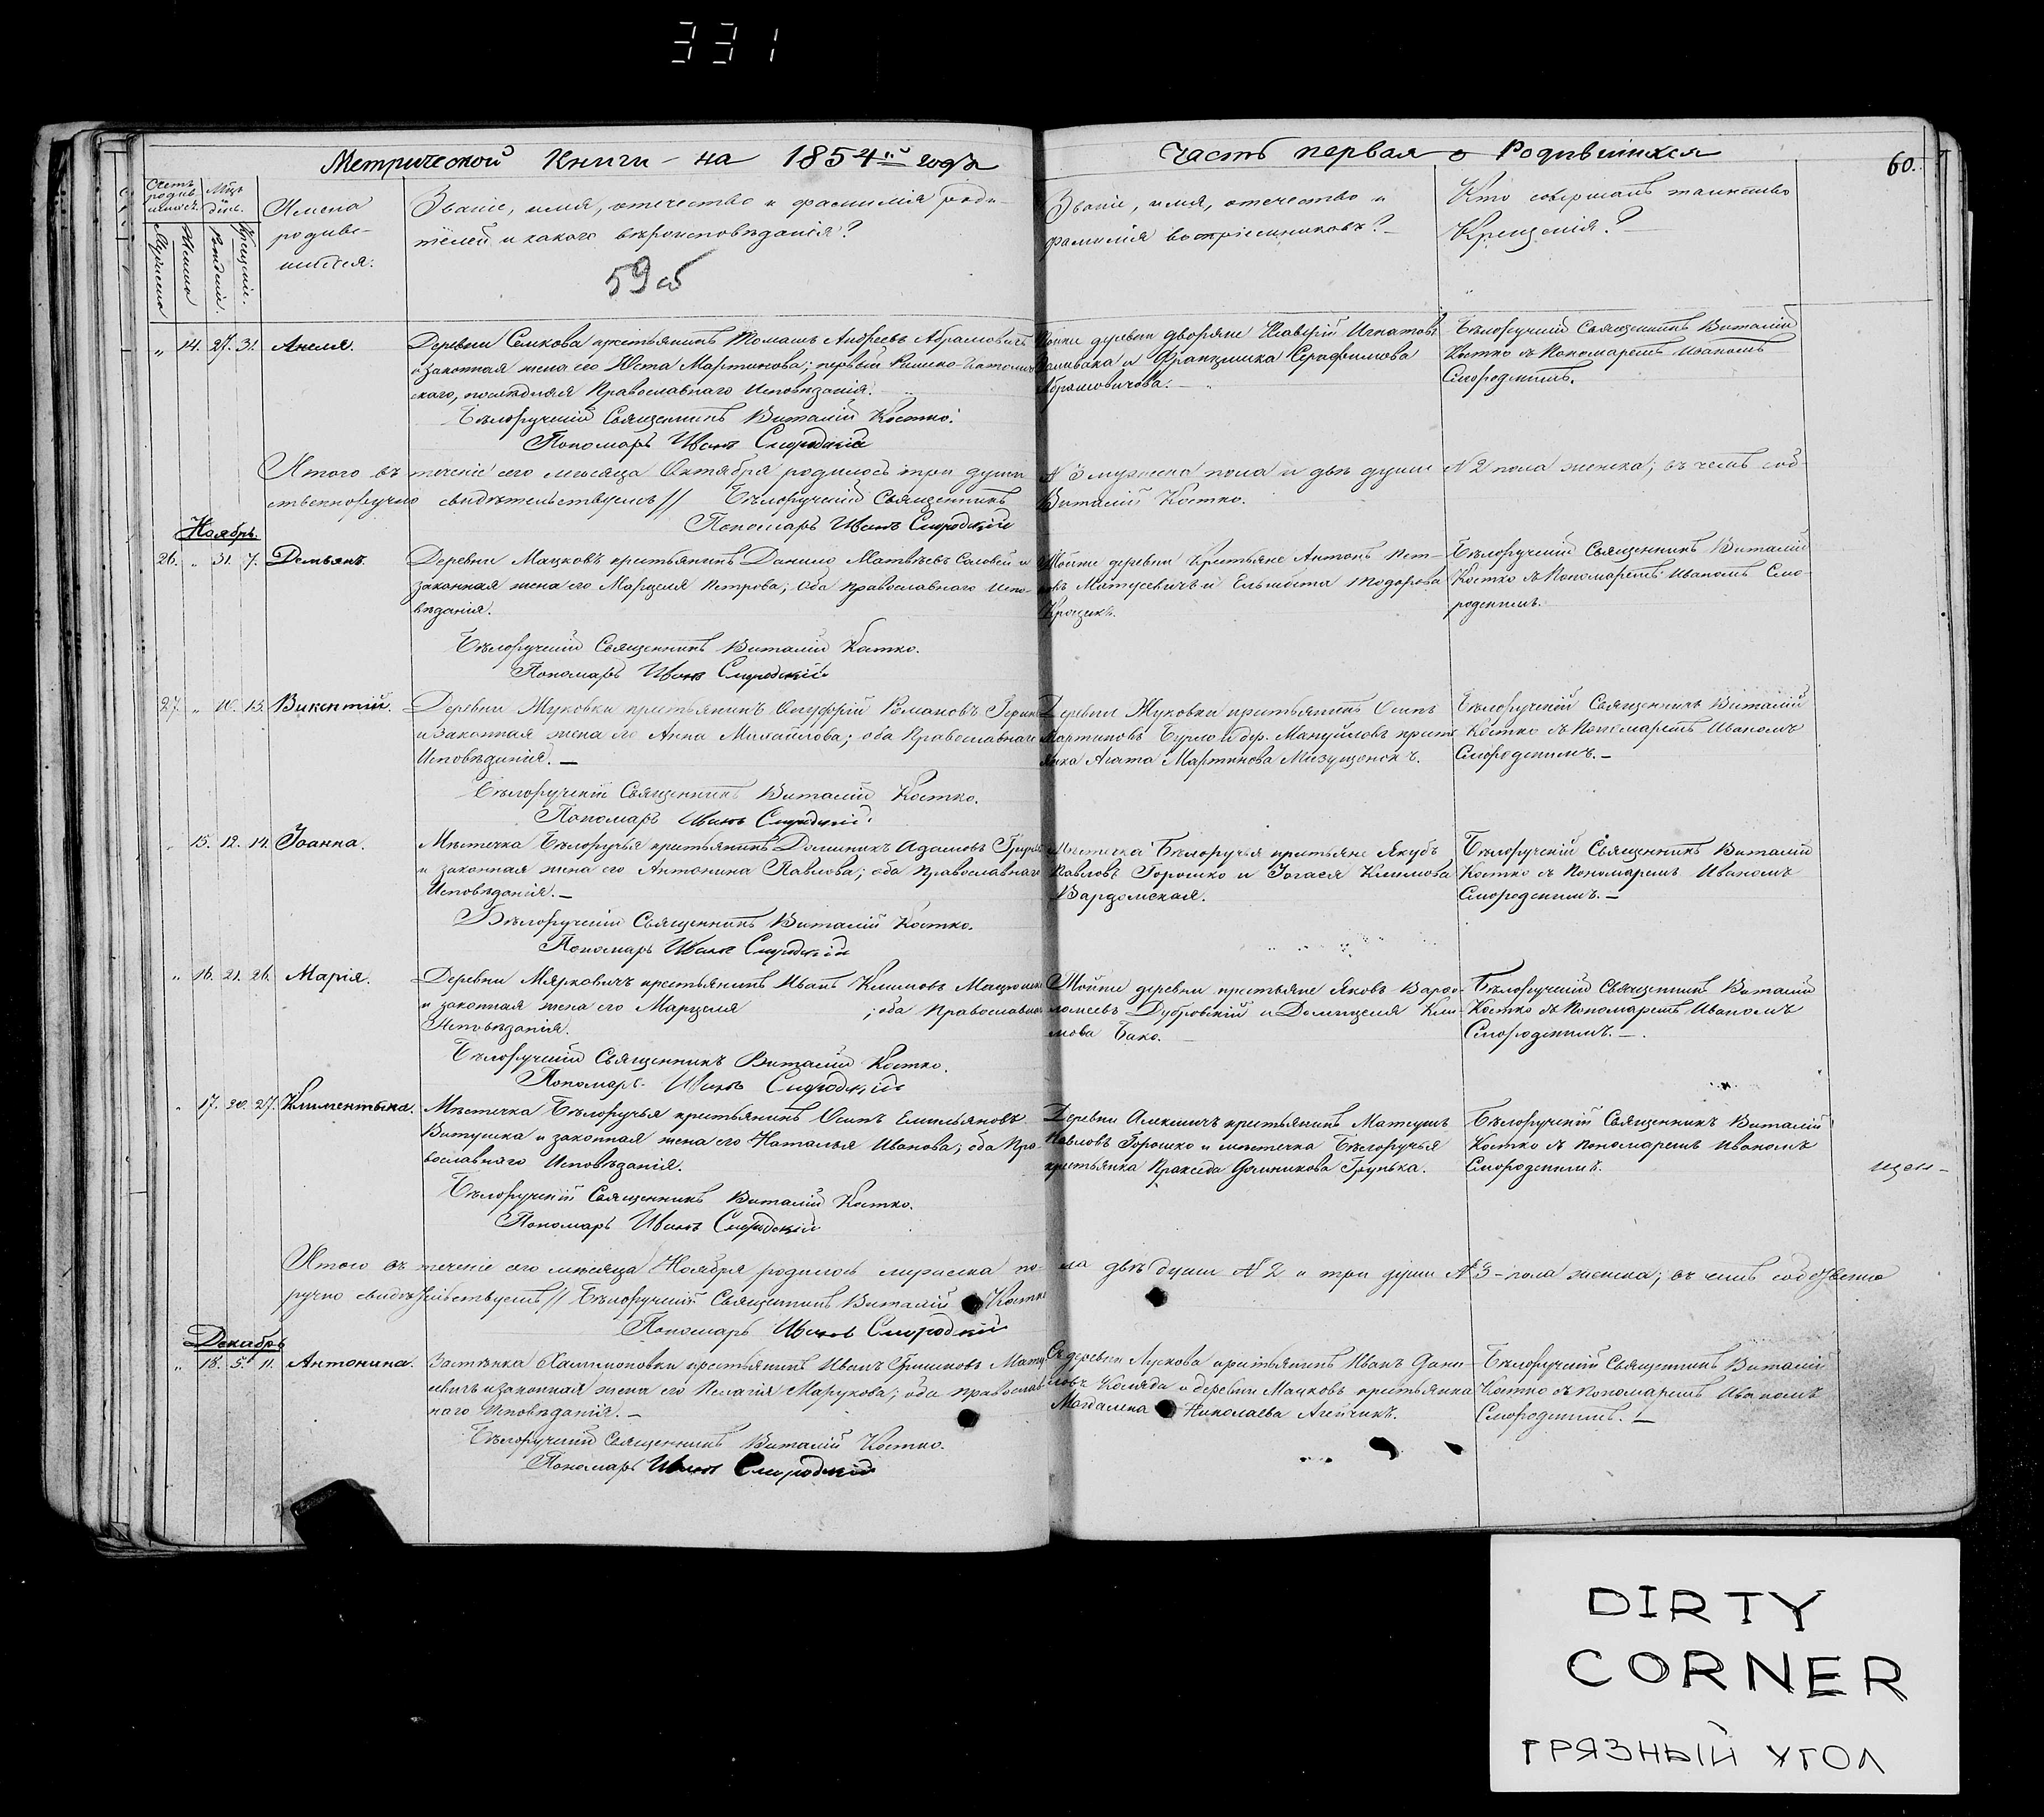 331
Метрической Книги на 1854й годъ
Часть первая о Родившихся
60.
Счетъ родив-шихся.
Мѣс. день.
Мужеска
Женска
Рожденія.
Крещенія.
Имена
родив-
шихся.
Званіе, имя, отечество и фамилія роди-
телей и какого вѣроисповѣданія?
59 об
Званіе, имя, отечество и
фамилія воспріемниковъ?
Кто совершалъ таинство
Крещенія?
„ 14. 27. 31. Анеля.
Деревни Семкова крестьянинъ Томашъ Андреевъ Абрамовичъ
и законная жена его Юста Мартинова; первый Римско-Католиче
скаго, послѣдняя Православнаго Исповѣданія.
Бѣлоручскій Священникъ Виталій Костко.
Пономарь Иванъ Смородскій
деревни дворяне Игнатовъ
и Францишка Серафимова
Абрамовичова.
Бѣлоручскій Священникъ Виталій
Костко съ Пономаремъ Иваномъ
Смородскимъ.
Итого въ теченіе сего мѣсяца Октября родилось три души N 3 мужеска пола и двѣ души N 2 пола женска; въ чемъ соб-
ственноручно свидѣтельствуемъ // Бѣлоручскій Священникъ Виталій Костко.
Пономарь Иванъ Смородскій
Ноябрь.
26. „ 31. 7. Демьянъ.
Деревни Мацковъ крестьянинъ Данило Матвѣевъ Соловей и
законная жена его Марцеля Петрова; оба Православнаго Испо-
вѣданія.
Бѣлоручскій Священникъ Виталій Костко.
Пономарь Иванъ Смородскій
Тойже деревни Крестьяне Антонъ Пет-
ровъ Матусевичъ и Ельжбета Тодорова
Крощикъ.
Бѣлоручскій Священникъ Виталій
Костко съ Пономаремъ Иваномъ Смо-
родскимъ.
27. „ 10. 13. Викентій.
Деревни Жуковки крестьянинъ Онуфрій Романовъ
и законная жена его Анна Михайлова; оба Православнаго
Исповѣданія.
Бѣлоручскій Священникъ Виталій Костко.
Пономарь Иванъ Смородскій.
Деревни Жуковки крестьянинъ Осипъ
Мартиновъ Бурло и дер. Мануйловъ кресть
янка Агата Мартинова
Бѣлоручскій Священникъ Виталій
Костко съ Пономаремъ Иваномъ
Смородскимъ.
„ 15. 12. 14. Іоанна.
Мѣстечка Бѣлоручья крестьянинъ Доминикъ Адамовъ
и законная жена его Антонина Павлова; оба Православнаго
Исповѣданія.
Бѣлоручскій Священникъ Виталій Костко.
Пономарь Иванъ Смородскій
Мѣстечка Бѣлоручья крестьяне Якубъ
Павловъ Горошко и Іогася Климова
Вардомская.
Бѣлоручскій Священникъ Виталій
Костко съ Пономаремъ Иваномъ
Смородскимъ.
„ 16. 21. 26. Марія.
Деревни Мяркович крестьянинъ Иванъ Климовъ
и законная жена его Марцеля ; оба Православнаго
Исповѣданія.
Бѣлоручскій Священникъ Виталій Костко.
Пономарь Иванъ Смородскій
Тойже деревни крестьяне Яковъ Варфо-
ломеевъ Дубровскій и Домицеля Кли-
мова Бако.
Бѣлоручскій Священникъ Виталій
Костко съ Пономаремъ Иваномъ
Смородскимъ.
„ 17. 20. 27. Климентина.
Мѣстечка Бѣлоручья крестьянинъ Осипъ Емельяновъ
Витушка и законная жена его Наталья Иванова; оба Пра-
вославнаго Исповѣданія.
Бѣлоручскій Священникъ Виталій Костко.
Пономарь Иванъ Смородскій
Деревни крестьянинъ Матушъ
Павловъ Горошко и мѣстечка Бѣлоручья
крестьянка Пракседа Доминикова Грунька.
Бѣлоручскій Священникъ Виталій
Костко съ Пономаремъ Иваномъ
Смородскимъ.
Итого въ теченіе сего мѣсяца Ноября родилось мужеска по-ла двѣ души N 2 и три души N 3 пола женска; въ чемъ собственно
ручно свидѣтельствуемъ // Бѣлоручскій Священникъ Виталій Костко
Пономарь Иванъ Смородскій
Декабрь
„ 18. 5. 11. Антонина.
Застѣнка крестьянинъ Иванъ Матус
евичъ и законная жена его Пелагія Маркова; оба Православ
наго Исповѣданія.
Бѣлоручскій Священникъ Виталій Костко.
Пономарь Иванъ Смородскій
деревни Лускова крестьянинъ Иванъ Дани-
ловъ Коляда и деревни Мацковъ крестьянка
Магдалена Николаева Агейчикъ.
Бѣлоручскій Священникъ Виталій
Костко съ Пономаремъ Иваномъ
Смородскимъ.
DIRTY
CORNER
ГРЯЗНЫЙ УГОЛ